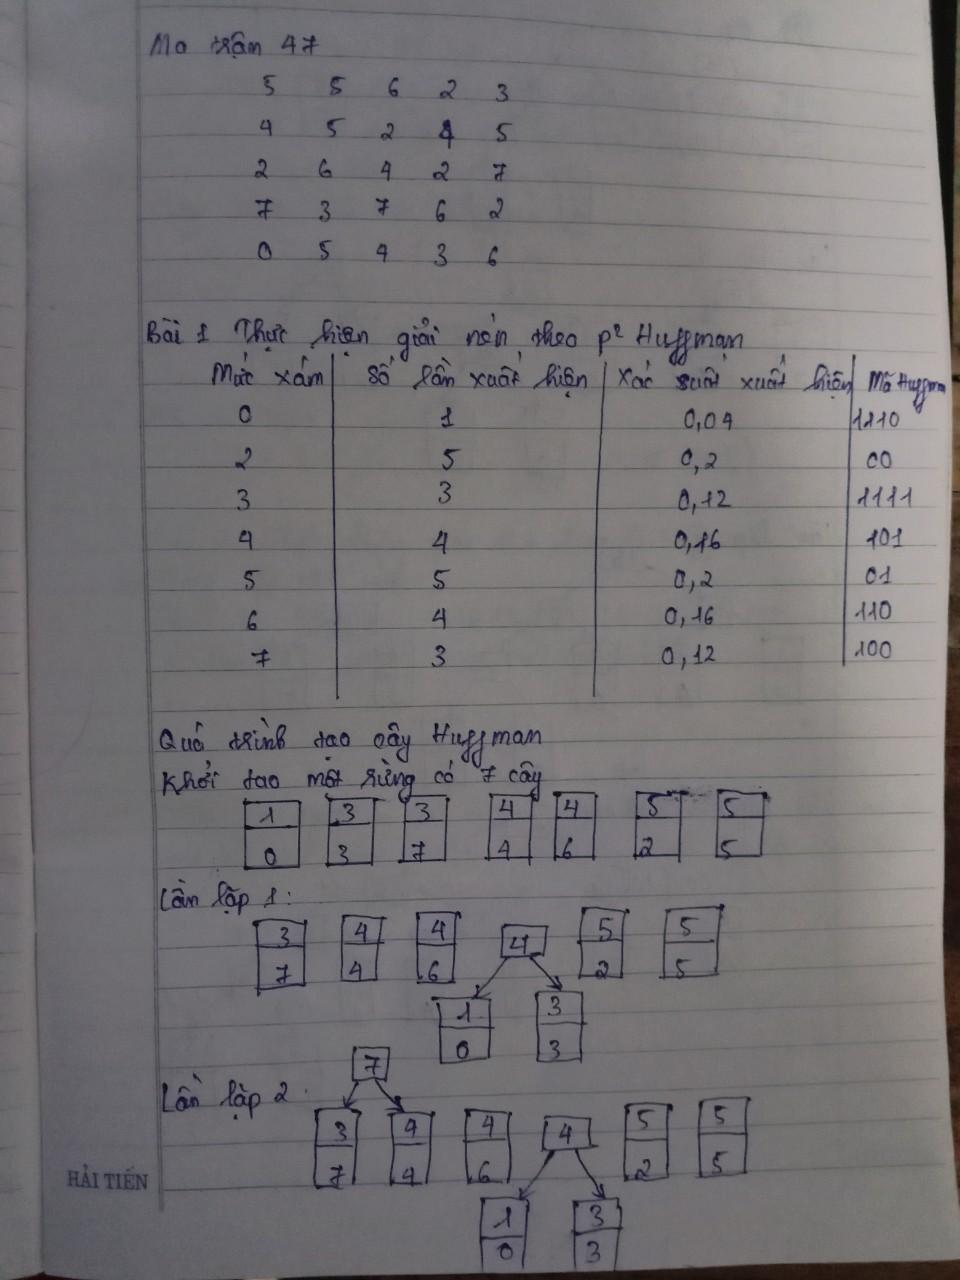 Ma trận 47
5 5 6 2 3
4 5 2 4 5
2 6 4 2 7
7 3 7 6 2
0 5 4 3 6
Bài 1 Thực hiện giải nén theo p² Huffman
Mức xám Số lần xuất hiện Xác suất xuất hiện Mã Huffman
0 1 0,04 1110
2 5 0,2 00
3 3 0,12 1111
4 4 0,16 101
5 5 0,2 01
6 4 0,16 110
7 3 0,12 100
Quá trình tạo cây Huffman
Khởi tạo một rừng có 7 cây
1 3 3 4 4 5 5
0 3 7 4 6 2 5
Lần lặp 1:
3 4 4 4 5 5
7 4 6 2 5
1 3
0 3
7
Lần lặp 2
3 4 4 4 5 5
7 4 6 2 5
HẢI TIẾN
1 3
0 3